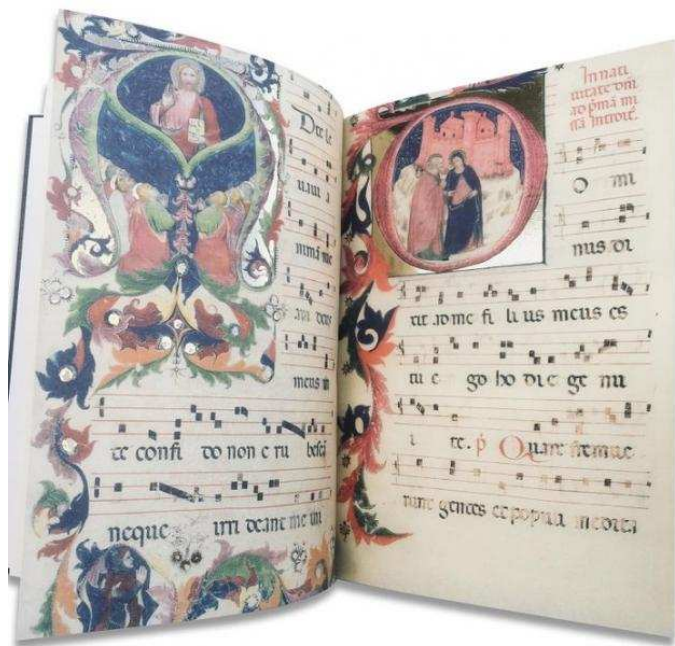 D te le
uaui a
nimã me
am deus
meus in
te confi do non e ru bescã
neque irri deant me ini
In nati
uitate dñi
ad pmã mi
ssã introit.
O mi
nus di
xit ad me fi li us meus es
tu e go ho di e ge nu
i te. p Quare fremue
runt gentes et populi medita